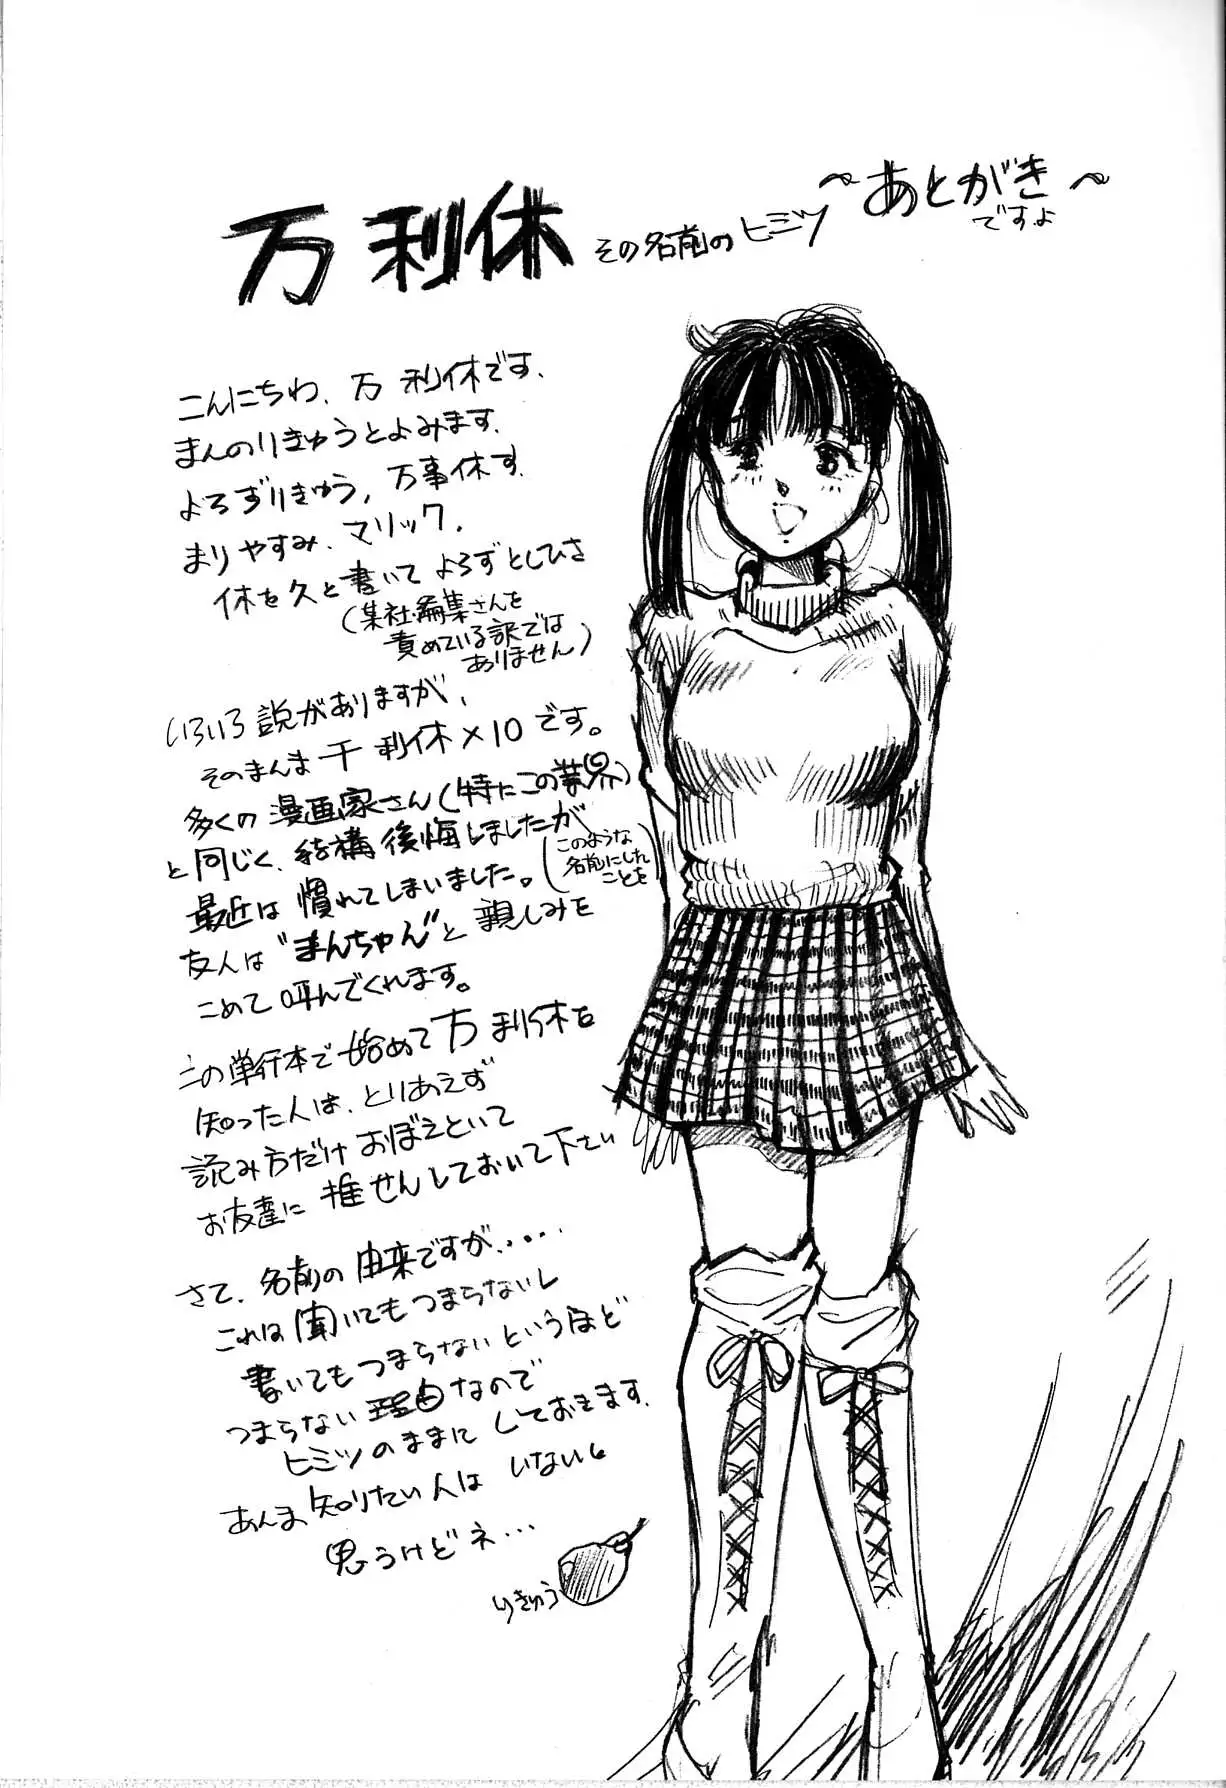 万利休 その名前のヒミツ 〜あとがき〜
ですよ
こんにちわ、万 利休です、
まんのりきゅうとよみます、
よろずりきゅう、万事休す、
まりやすみ、マリック、
休を久と書いてよろずとしひさ
(某社・編集さんを
責めている訳では
ありません)
いろいろ説がありますが、
そのまんま千 利休×10です。
多くの漫画家さん(特にこの業界)
と同じく、結構後悔しましたが
(このような
名前にした
ことを)
最近は慣れてしまいました。
友人は“まんちゃん”と親しみを
こめて呼んでくれます。
この単行本で始めて万 利休を
知った人は、とりあえず
読み方だけおぼえといて
お友達に推せんしておいて下さい
さて、名前の由来ですが、・・・・
これは聞いてもつまらないし
書いてもつまらないというほど
つまらない理由なので
ヒミツのままにしておきます、
あんま知りたい人はいないし
思うけどネ・・・
りきゅう